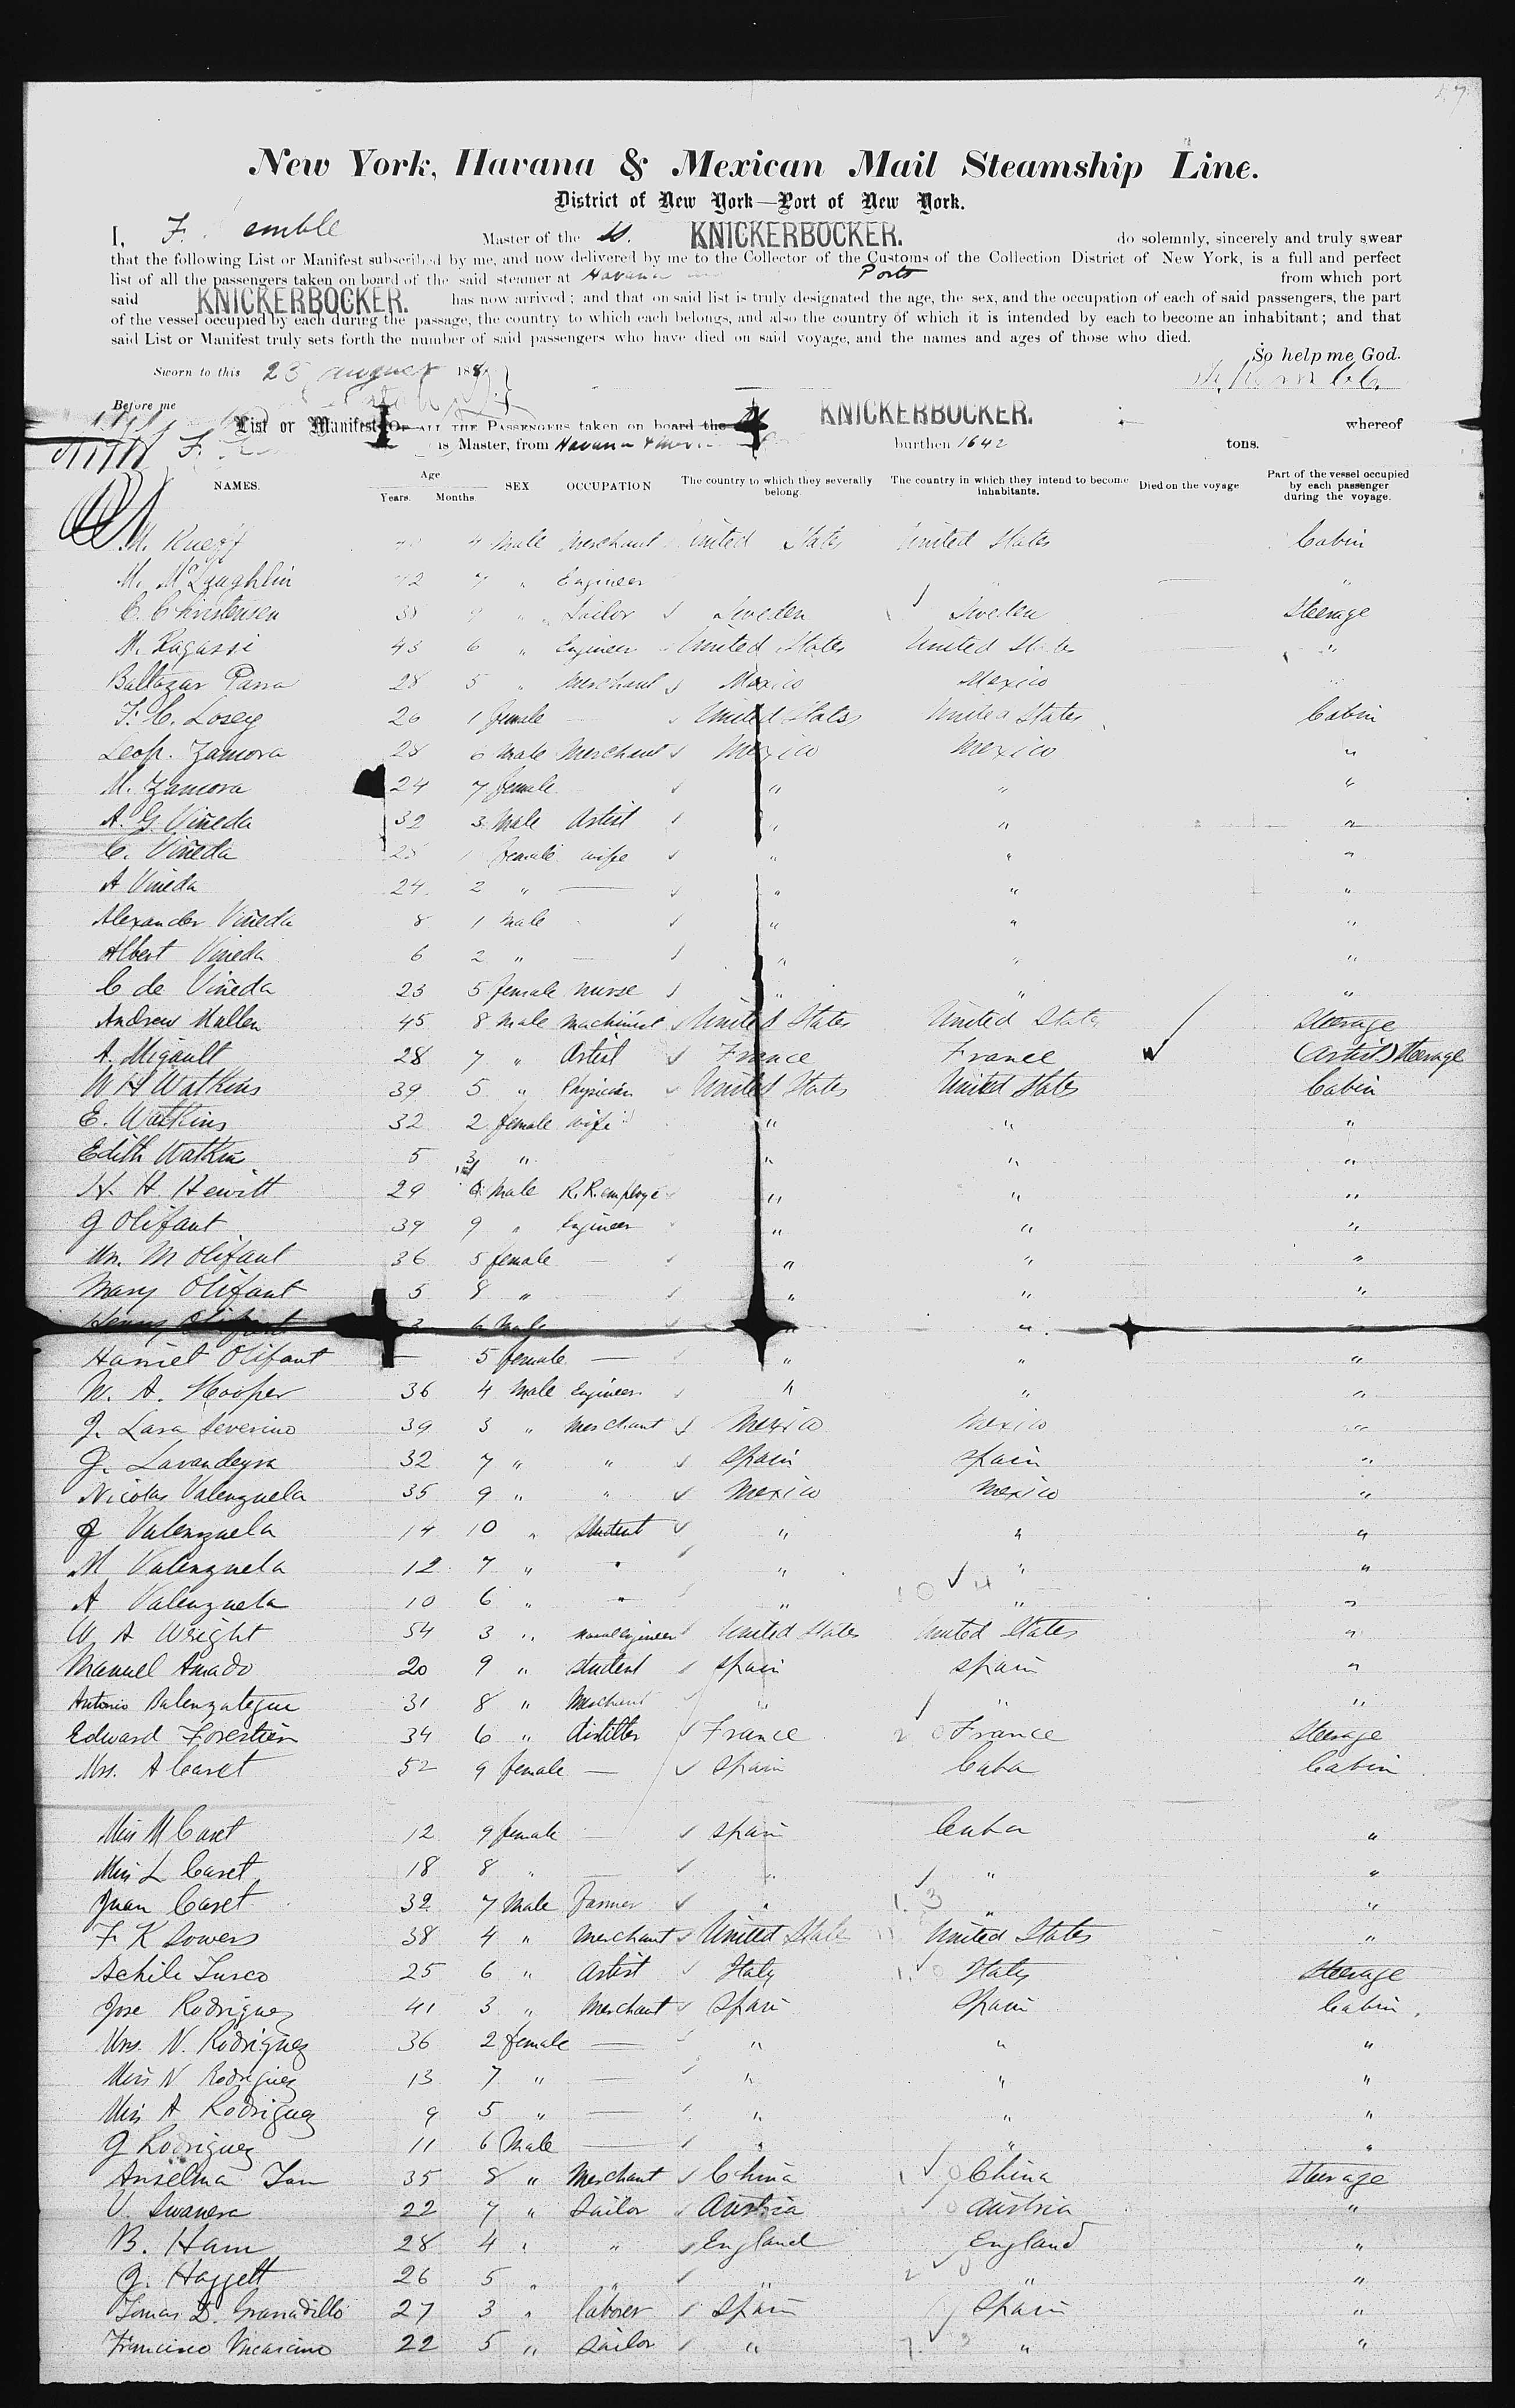 New York, Havana & Mexican Mail Steamship Line.
District of New York—Port of New York.
I, F. emble Master of the SS. KNICKERBOCKER. do solemnly, sincerely and truly swear
that the following List or Manifest subscribed by me, and now delivered by me to the Collector of the Customs of the Collection District of New York, is a full and perfect
list of all the passengers taken on board of the said steamer at Havana Ports from which port
said KNICKERBOCKER. has now arrived; and that on said list is truly designated the age, the sex, and the occupation of each of said passengers, the part
of the vessel occupied by each during the passage, the country to which each belongs, and also the country of which it is intended by each to become an inhabitant; and that
said List or Manifest truly sets forth the number of said passengers who have died on said voyage, and the names and ages of those who died.
So help me God.
Sworn to this 23 august 188
Before me
List or Manifest OF ALL THE PASSENGERS taken on board the KNICKERBOCKER. whereof
F. is Master, from Havana burthen 1642 tons.
NAMES. Age Years. Months. SEX OCCUPATION The country to which they severally belong. The country in which they intend to become inhabitants. Died on the voyage. Part of the vessel occupied by each passenger during the voyage.
M. 4 Male Merchant United States United States Cabin
M. McLaughlin 7 " Engineer "
C. Christensen " Sailor Sweden Sweden Steerage
M. Ragassi 43 6 " Engineer United States United States "
Baltazar Parra 28 5 " Merchant Mexico Mexico
F. C. Losey 26 1 female — United States United States Cabin
Leop. Zamora 28 6 Male Merchant Mexico Mexico "
M. Zamora 24 7 female " " "
A. G. Viñeda 32 3 Male Artist " " "
C. Viñeda 25 1 female wife " " "
A Vineda 24 2 " — " " "
Alexander Viñeda 8 1 Male " " "
Albert Vineda 6 2 " — " " "
C de Viñeda 23 5 female nurse " " "
Andrew Mullen 45 8 Male Machinist United States United States Steerage
A. Migault 28 7 " Artist France France (Artist) Steerage
W H Watkins 39 5 " Physician United States United States Cabin
E. Watkins 32 2 female wife " " "
Edith Watkin 5 3 " " " "
H. H. Hewitt 29 Male R.R. employé " " "
G Olifant 39 9 " Engineer " " "
Mrs. M Olifant 36 5 female — " " "
Mary Olifant 5 8 " " " "
Henry Olifant 6 Male " " "
Harriet Olifant — 5 female — " " "
W. A. Hooper 36 4 Male Engineer " " "
J. Lara Severino 39 3 " Merchant Mexico Mexico "
J. Lavandeyra 32 7 " " Spain Spain "
Nicolas Valenzuela 35 9 " " Mexico Mexico "
J Valenzuela 14 10 " Student " " "
M Valenzuela 12 7 " " " " "
A Valenzuela 10 6 " " " " "
W A Wright 54 3 " Naval Engineer United States United States "
Manuel Amado 20 9 " Student Spain Spain "
Antonio Balenzategui 31 8 " Merchant " " "
Edward Forestier 34 6 " distiller France France Steerage
Mrs. A Caset 52 9 female — Spain Cuba Cabin
Miss M Caset 12 9 female Spain Cuba "
Miss L Caset 18 8 " — " " "
Juan Caset 32 7 Male Farmer " " "
F K Sowers 38 4 " Merchant United States United States "
Achile Tusco 25 6 " Artist Italy Italy Steerage
Jose Rodriguez 41 3 " Merchant Spain Spain Cabin.
Mrs. N. Rodriguez 36 2 female — " " "
Miss N Rodriguez 13 7 " — " " "
Miss A Rodriguez 9 5 " — " " "
G Rodriguez 11 6 Male — " " "
Anselma 35 8 " Merchant China China Steerage
V. Swanera 22 7 " Sailor Austria Austria "
B. Ham 28 4 " " England England "
G. Haggett 26 5 " " " " "
Tomas D. Granadillo 27 3 " laborer Spain Spain "
Francisco 22 5 " Sailor " " "